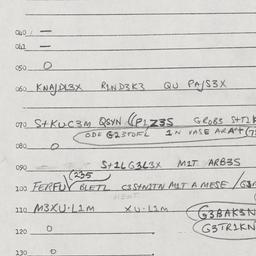 040 —
041 —
050 O
060 KNAJDL3X RIND3K3 QU PAJS3X
070 S+KUC3M QSYN PLZ3S GROBS
ODE G23TOFL IN VASE
080 O
090 S+1LG3L3X MIT ARB3S
(235
100 FERFU GLETL C3S+NITN MIT A MESE
110 M3XU·LIM XU·LIM G3BAK3N
G3TRIKN
120 O
130 O